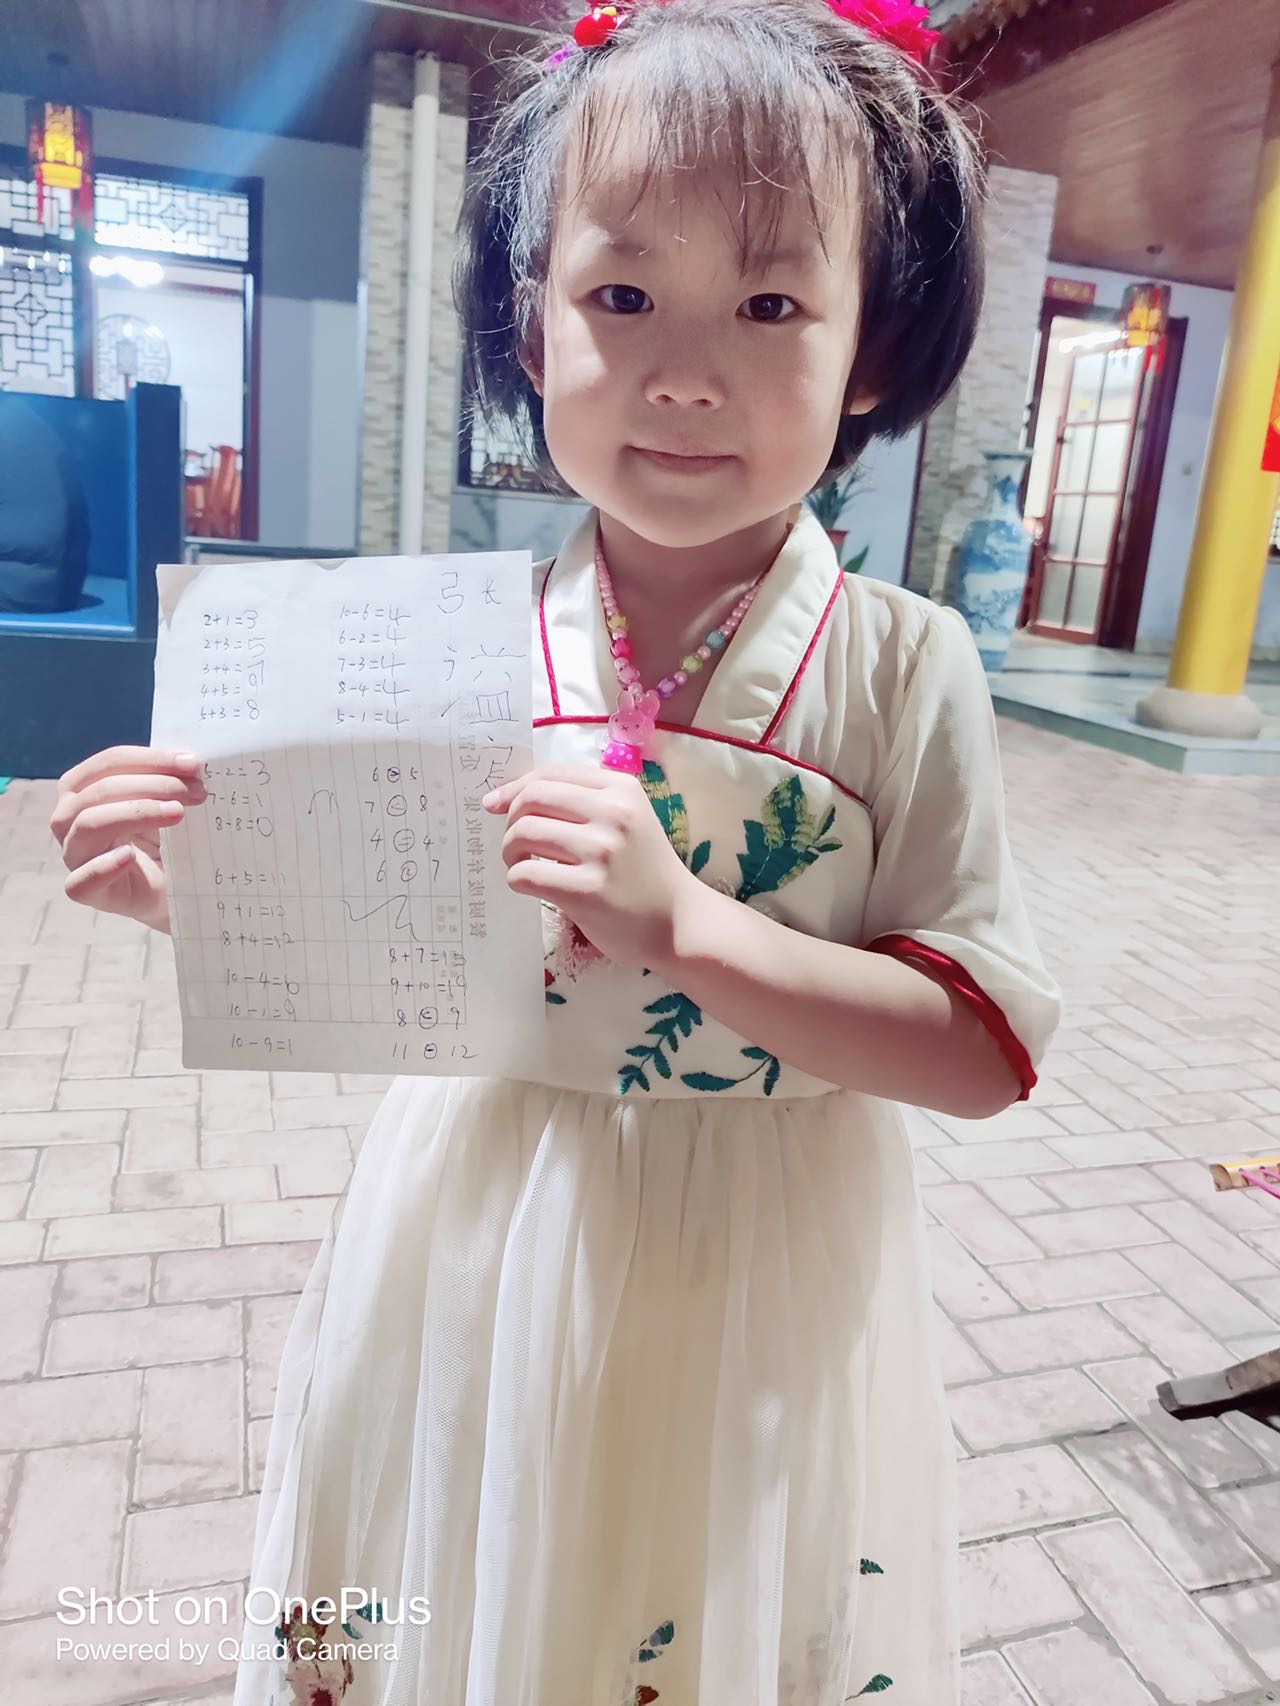 弓长
2+1=3
2+3=5
3+4=7
4+5=9
5+3=8
10-6=4
6-2=4
7-3=4
8-4=4
5-1=4
5-2=3
7-6=1
8-8=0
6+5=11
9+1=10
8+4=12
10-4=6
10-1=9
10-9=1
6>5
7<8
4=4
6<7
8+7=15
9+10=19
8<9
11 12
Shot on OnePlus
Powered by Quad Camera